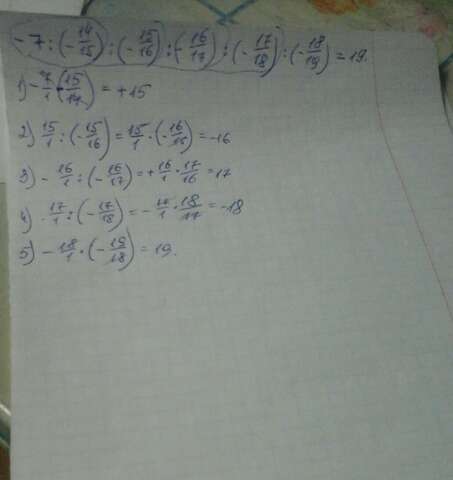 -7:(-14/15):(-15/16):(-16/17):(-17/18):(-18/19)=19.
1) -7/1·(15/14)=+15
2) 15/1:(-15/16)=15/1·(-16/15)=-16
3) -16/1:(-16/17)=+16/1·17/16=17
4) 17/1:(-17/18)=-17/1·18/17=-18
5) -18/1·(-19/18)=19.